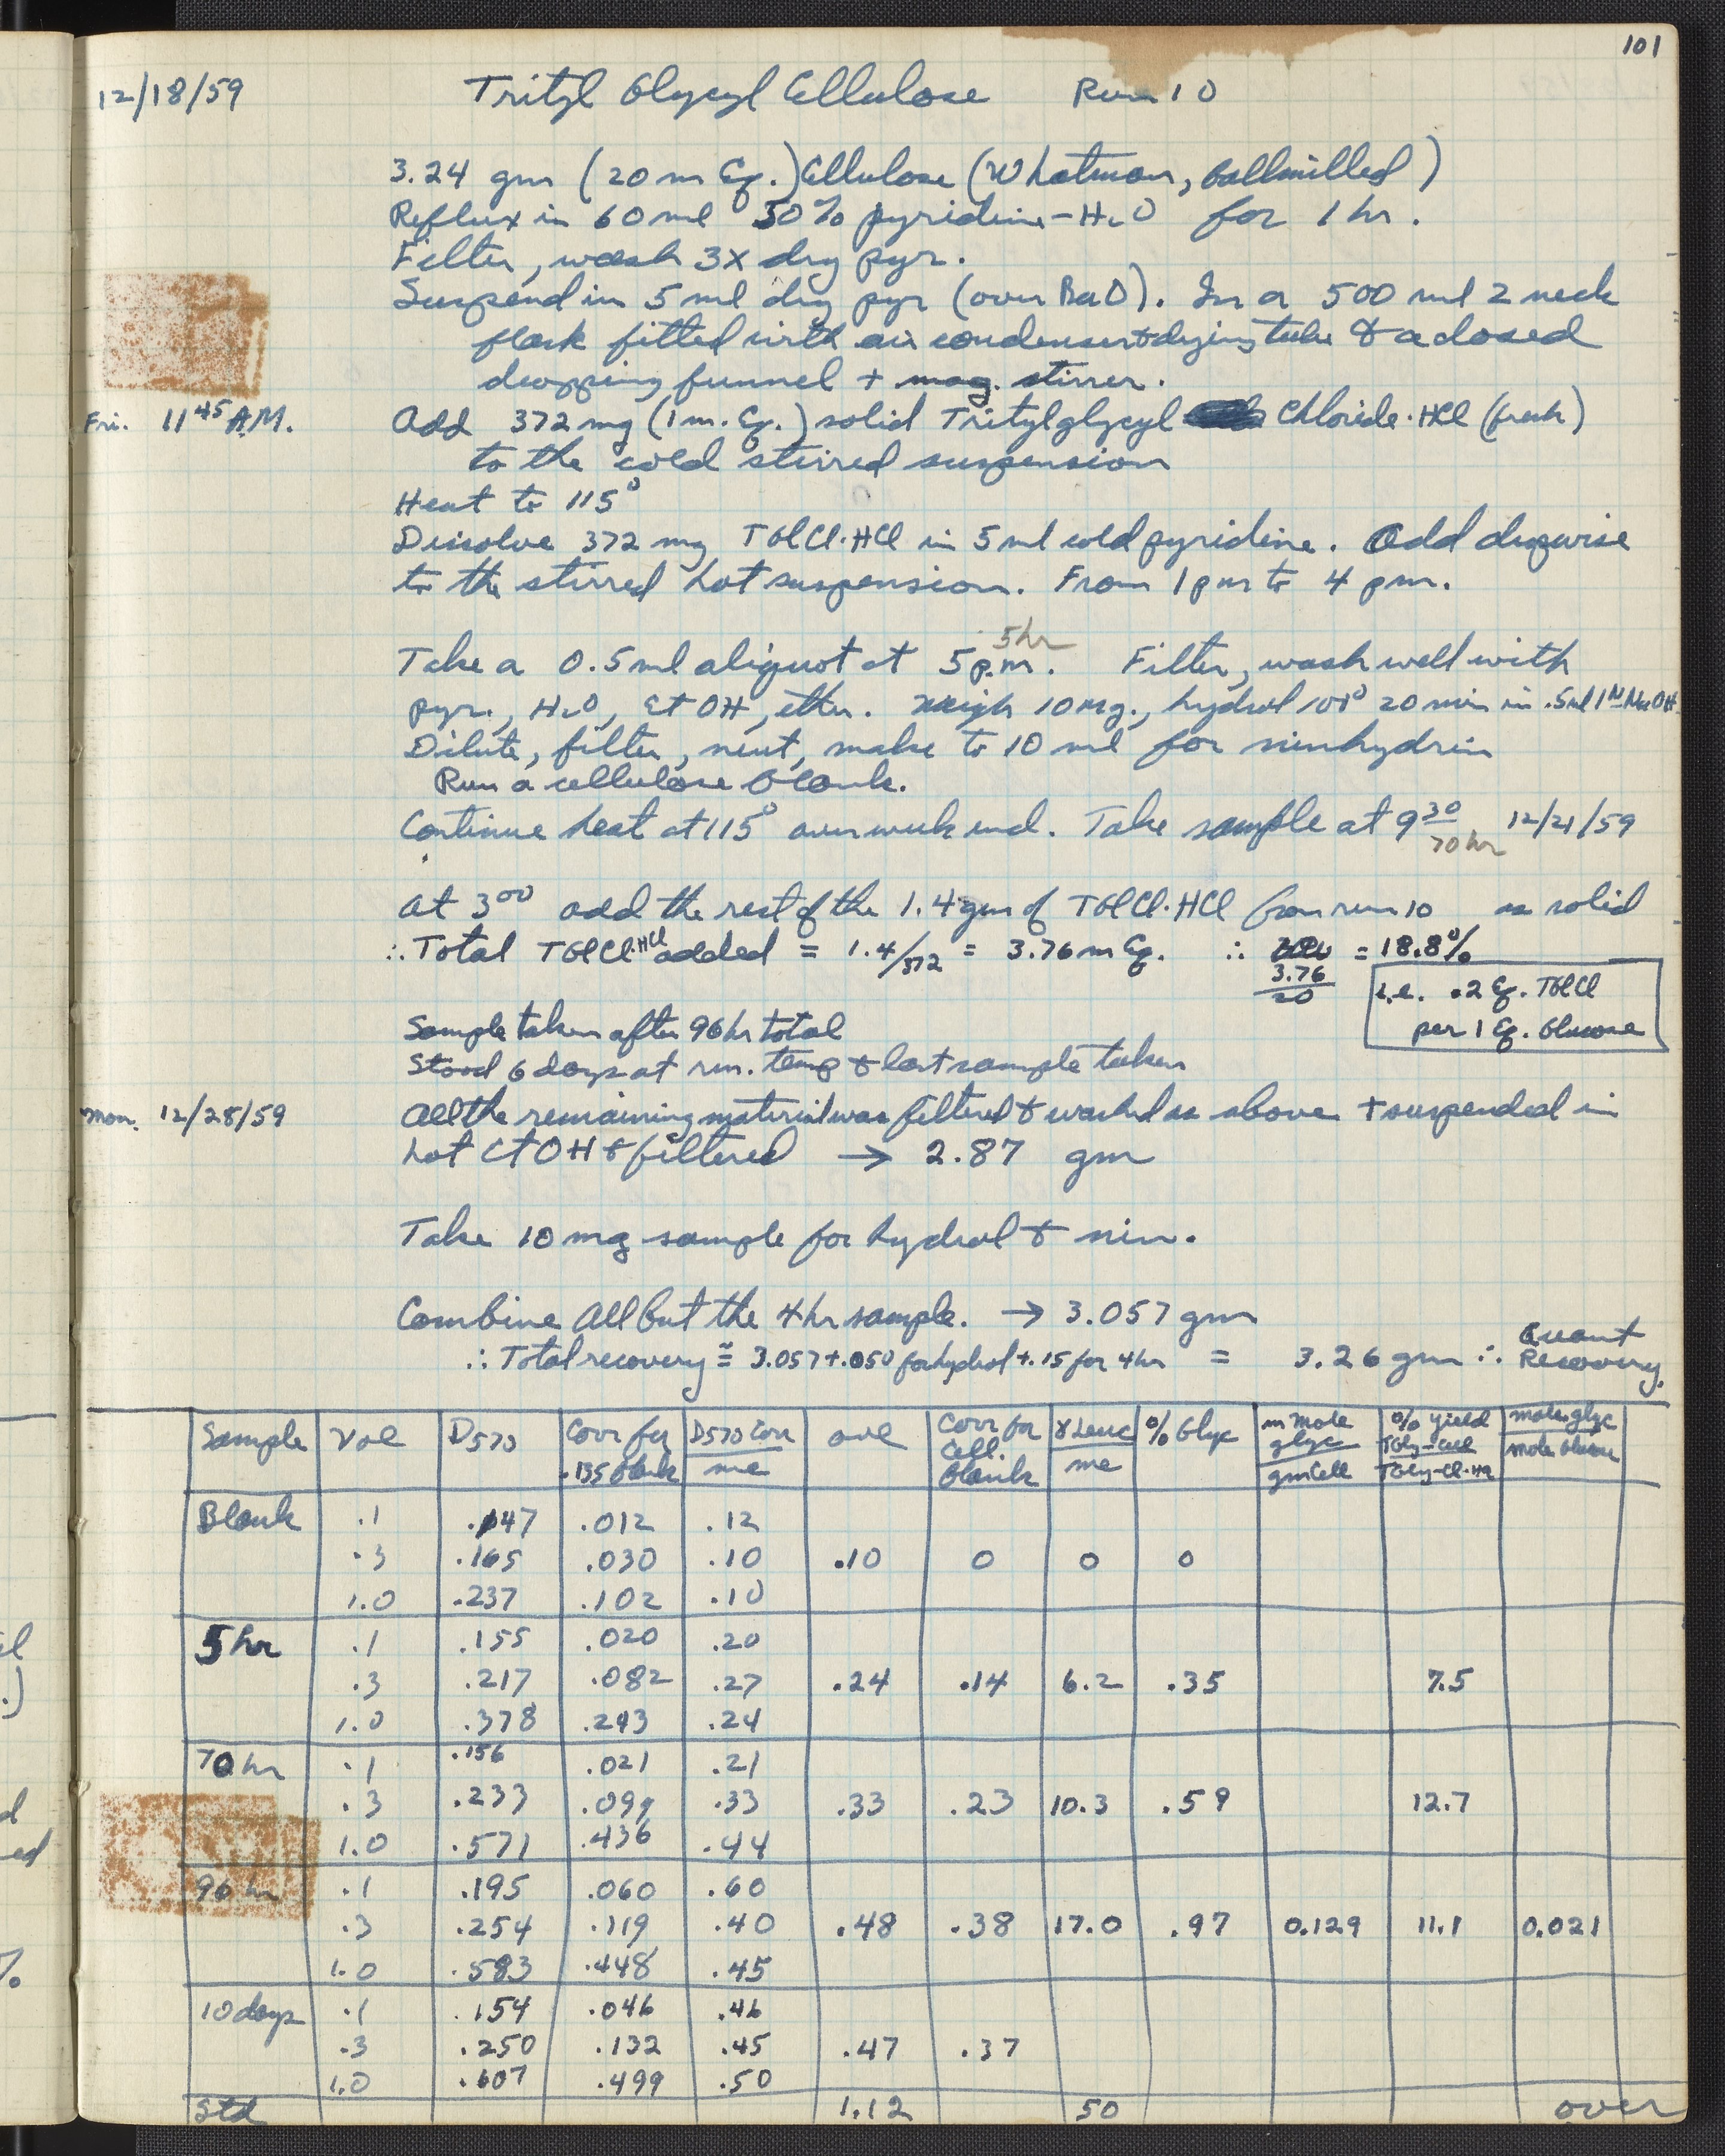 101
12/18/59 Trityl Glycyl Cellulose Run 10
3.24 gm (20 m Eq.) Cellulose (Whatman, ballmilled)
Reflux in 60 ml 50% pyridine-H2O for 1 hr.
Filter, wash 3x dry pyr.
Suspend in 5 ml dry pyr (over BaO). In a 500 ml 2 neck
flask fitted with air condenser + drying tube & a closed
dropping funnel + mag. stirrer.
Fri. 11 45 A.M. Add 372 mg (1 m. Eq.) solid Tritylglycyl Chloride·HCl (fresh)
to the cold stirred suspension
Heat to 115°
Dissolve 372 mg TGlCl·HCl in 5 ml cold pyridine. Add dropwise
to the stirred hot suspension. From 1 pm to 4 pm.
5 hr
Take a 0.5 ml aliquot at 5 p.m. Filter, wash well with
pyr., H2O, EtOH, ether. Weigh 10 mg., hydrol 100° 20 min in .5 ml 1N NaOH
Dilute, filter, neut, make to 10 ml for ninhydrin
Run a cellulose blank.
Continue heat at 115° over week end. Take sample at 9 30 12/21/59
70 hr
At 3 00 add the rest of the 1.4 gm of TGlCl·HCl from run 10 as solid
∴ Total TGlCl·HCl added = 1.4/372 = 3.76 m Eq. ∴ 3.76/20 = 18.8%
i.e. .2 Eq. TGlCl
per 1 Eq. Glucose
Sample taken after 96 hr total
Stood 6 days at rm. temp & last sample taken
Mon. 12/28/59 All the remaining material was filtered & washed as above + suspended in
hot EtOH & filtered → 2.87 gm
Take 10 mg sample for hydrol & nin.
Combine All But the 4 hr sample. → 3.057 gm
∴ Total recovery ≅ 3.057 + .050 for hydrol + .15 for 4 hr = 3.26 gm ∴ Quant Recovery.
Sample Vol D570 Corr for .135 blank D570 Corr/ml ave Corr for Cell. blank γ Leuc/ml % Glyc m Mole glyc/gm Cell % Yield TGly-Cell/TGly-Cl·HCl mole glyc/mole Glucose
Blank .1 .147 .012 .12
.3 .165 .030 .10 .10 0 0 0
1.0 .237 .102 .10
5 hr .1 .155 .020 .20
.3 .217 .082 .27 .24 .14 6.2 .35 7.5
1.0 .378 .243 .24
70 hr .1 .156 .021 .21
.3 .233 .099 .33 .33 .23 10.3 .59 12.7
1.0 .571 .436 .44
96 hr .1 .195 .060 .60
.3 .254 .119 .40 .48 .38 17.0 .97 0.129 11.1 0.021
1.0 .583 .448 .45
10 days .1 .154 .046 .46
.3 .250 .132 .45 .47 .37
1.0 .607 .499 .50
Std 1.12 50 over